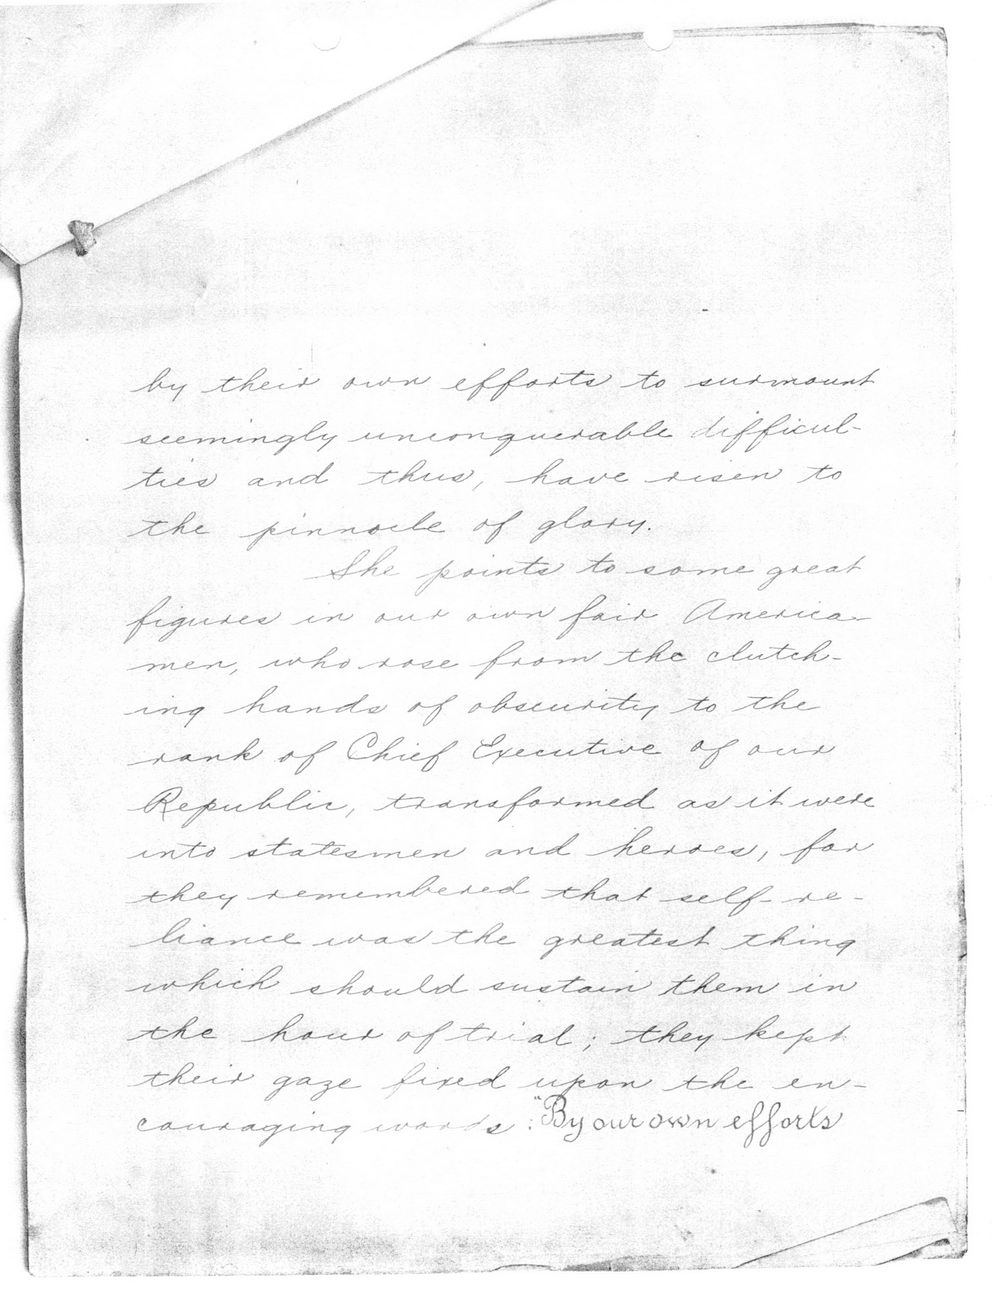 by their own efforts to surmount
seemingly unconquerable difficul-
ties and thus, have risen to
the pinnacle of glory.
She points to some great
figures in our own fair America-
men, who rose from the clutch-
ing hands of obscurity to the
rank of Chief Executive of our
Republic, transformed as it were
into statesmen and heroes, for
they remembered that self-re-
liance was the greatest thing
which should sustain them in
the hour of trial; they kept
their gaze fixed upon the en-
couraging words: "By our own efforts